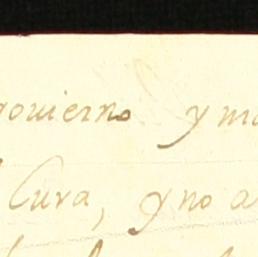 govierno y ma
l Cura, y no a